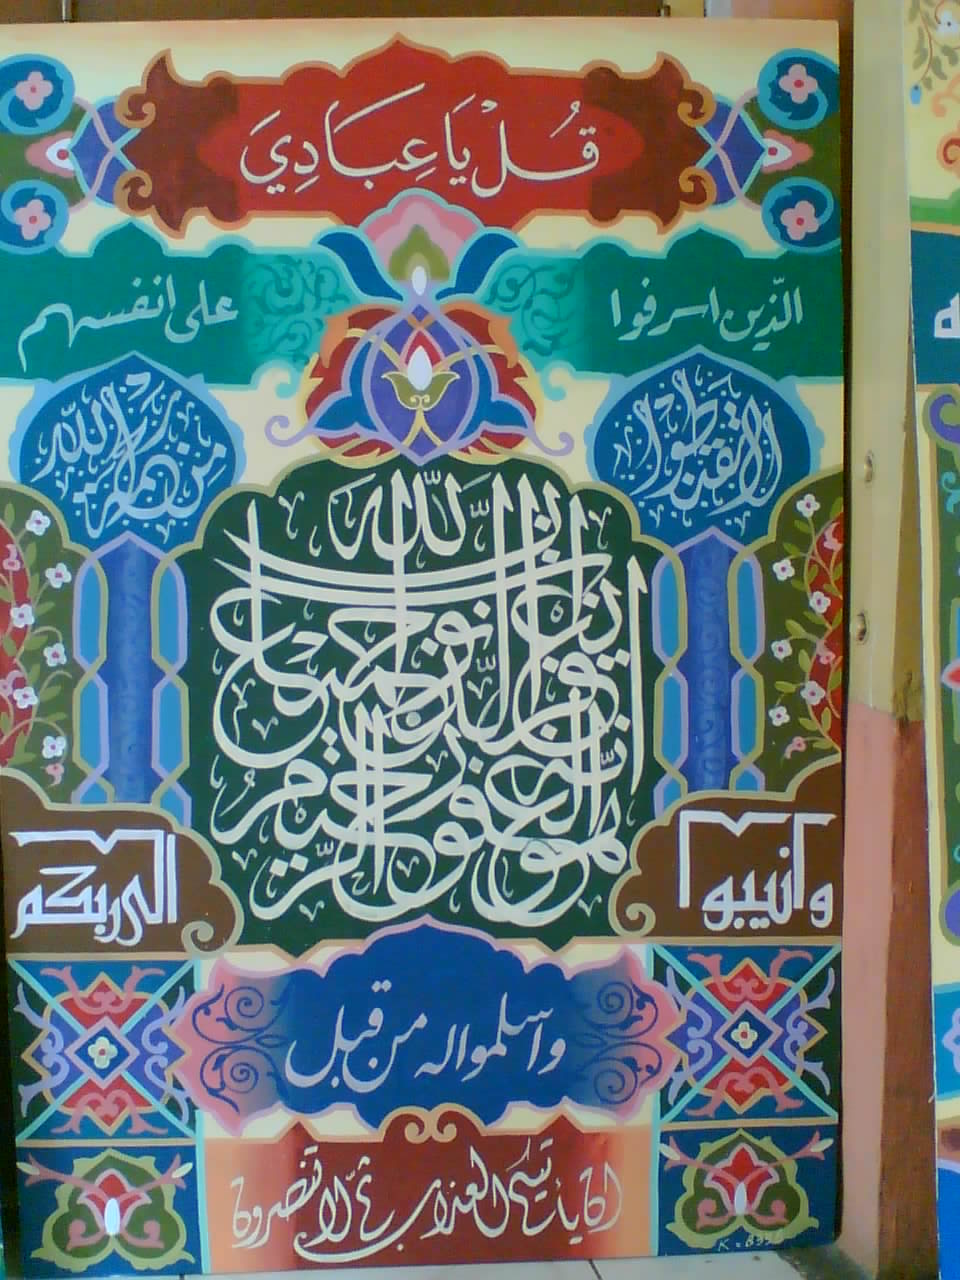 قُلْ يَا عِبَادِيَ
الّذين اسرفوا على انفسهم
لا تقنطوا من رحمة الله
ان الله يغفر الذنوب جميعا
انه هو الغفور الرحيم
وانيبوا الى ربكم
واسلموا له من قبل
ان يأتيكم العذاب ثمّ لا تنصرون